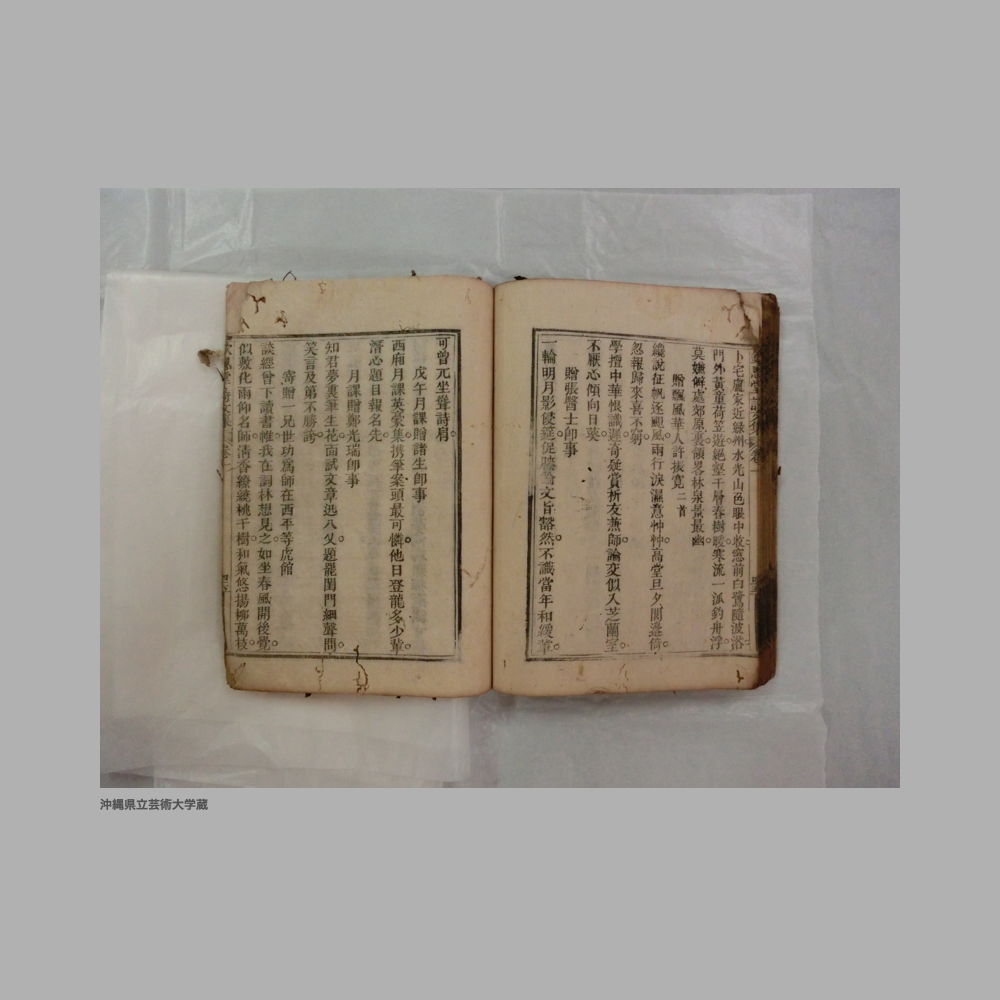 卜宅盧家近綠州水光山色眼中收窓前白鷺隨波浴
門外黃童荷笠遊絕壑千層春樹暖寒流一派釣舟浮
莫嫌僻處郊原裏領畧林泉景最幽
贈飄風華人許振寬二首
纔說征帆逐颶風兩行淚濕意忡忡高堂旦夕閭邊倚
忽報歸來喜不窮
學擅中華恨識遲奇疑賞析友兼師論交似入芝蘭室
不厭心傾向日葵
贈張醫士卽事
一輪明月影傞促膝論文旨豁然不識當年和緩輩
可曾元坐聳詩肩
戊午月課贈諸生卽事
西廂月課英豪集携筆案頭最可憐他日登龍多少輩
潛心題目報名先
月課贈鄭光瑞卽事
知君夢裏筆生花面試文章迅八乂題罷閨門細聲問
笑言及第不勝誇
寄贈一兄世功爲師在西平等虎館
談經曾下讀書帷我在詞林想見之如坐春風開後覺
似敷化雨仰名師淸香繚繞桃千樹和氣悠揚柳萬枝
沖縄県立芸術大学蔵